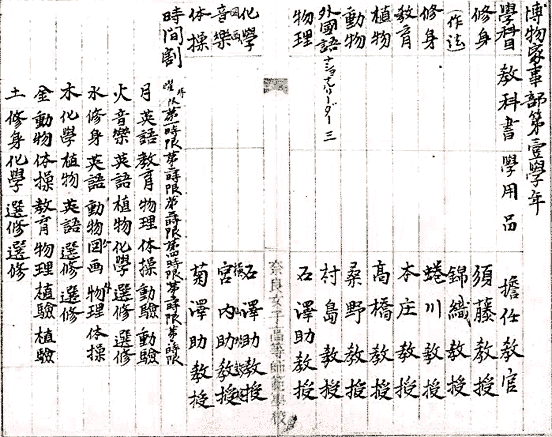 博物家事部第壹學年
學科目 教科書 學用品 擔任教官
修身 須藤教授
（作法） 錦織教授
修身 蜷川教授
教育 本庄教授
植物 髙橋教授
動物 桑野教授
外國語 ナショナルリーダー 三 村島教授
物理 石澤助教授
奈良女子高等師範學校
化學 石澤助教授
図画 宮内助教授
音樂
体操 菊澤助教授
時間割
曜 限 第一時限 第二時限 第三時限 第四時限 第五時限 第六時限
月 英語 教育 物理 体操 動驗 動驗
火 音樂 英語 植物 化學 選修 選修
水 修身 英語 動物 図画 物理 体操
木 化學 植物 英語 選修 選修
金 動物 体操 教育 物理 植驗 植驗
土 修身 化學 選修 選修